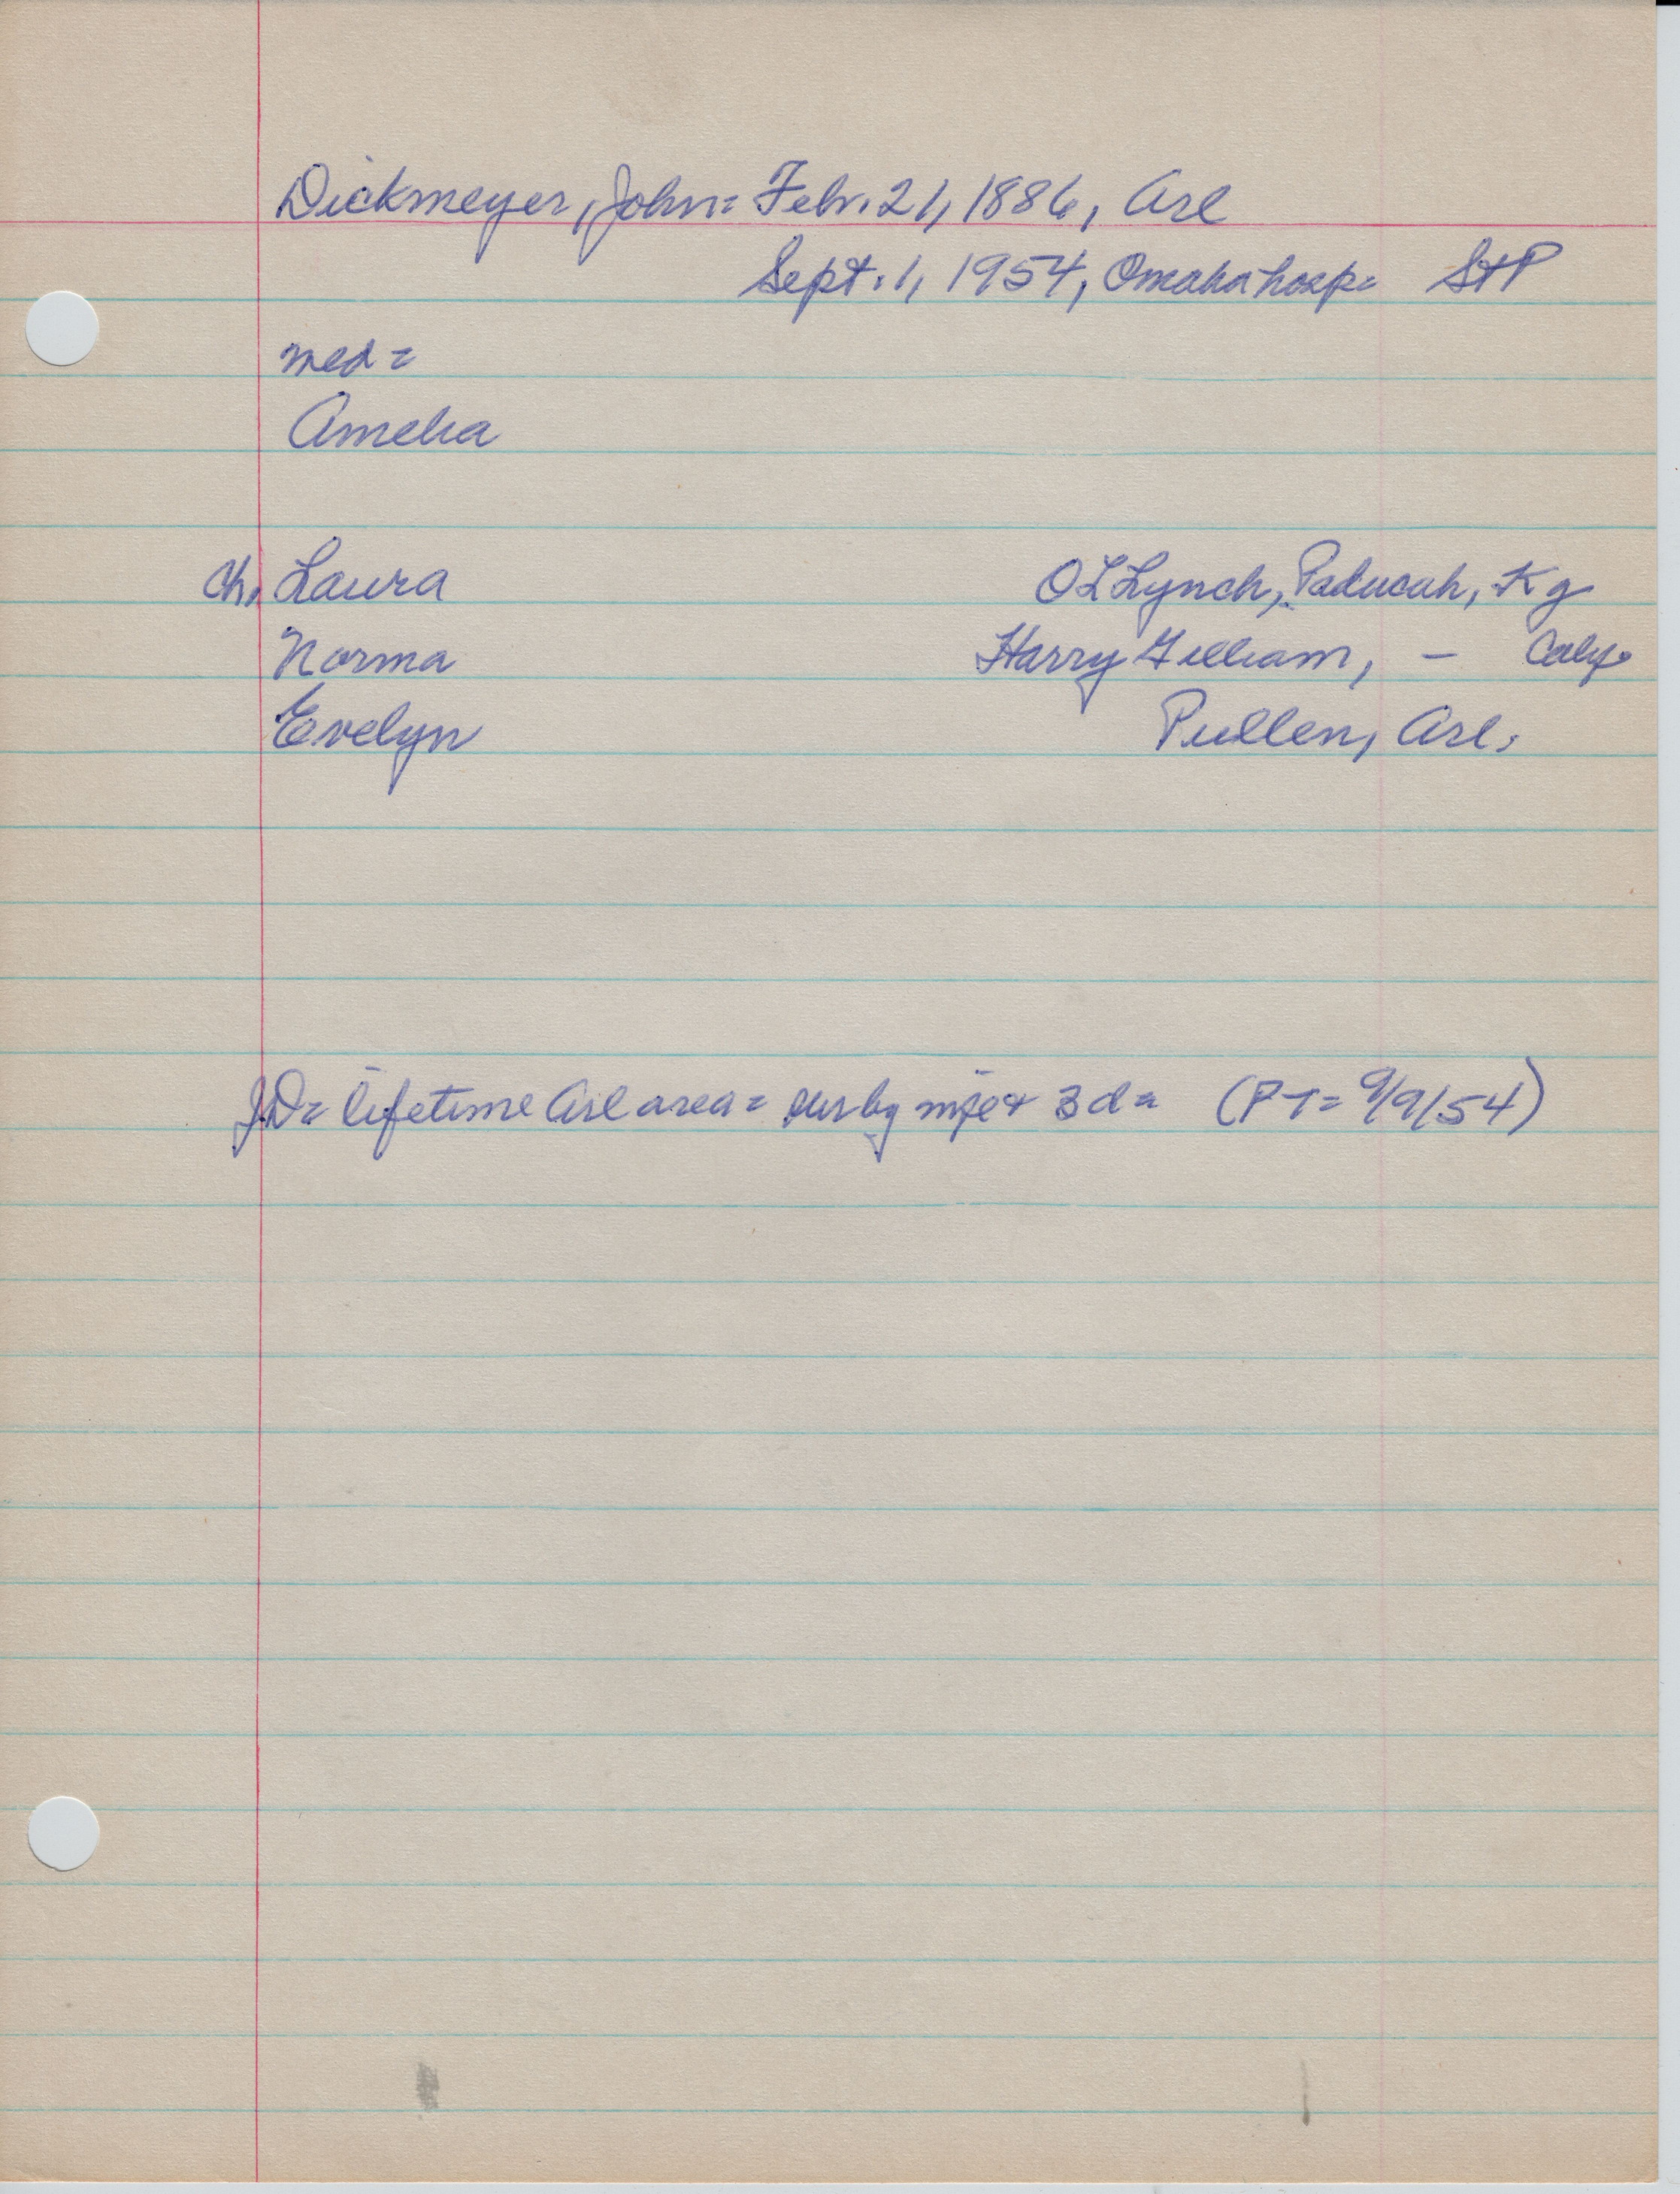 Dickmeyer, John = Febr. 21, 1886, Arl
Sept. 1, 1954, Omaha hosp = St P
med =
Amelia
Ch. Laura O L Lynch, Paducah, Ky
Norma Harry Gilliam, – Calif.
Evelyn Pullen, Arl.
JD = lifetime Arl area = sur by & 3 d = (PT = 9/9/54)